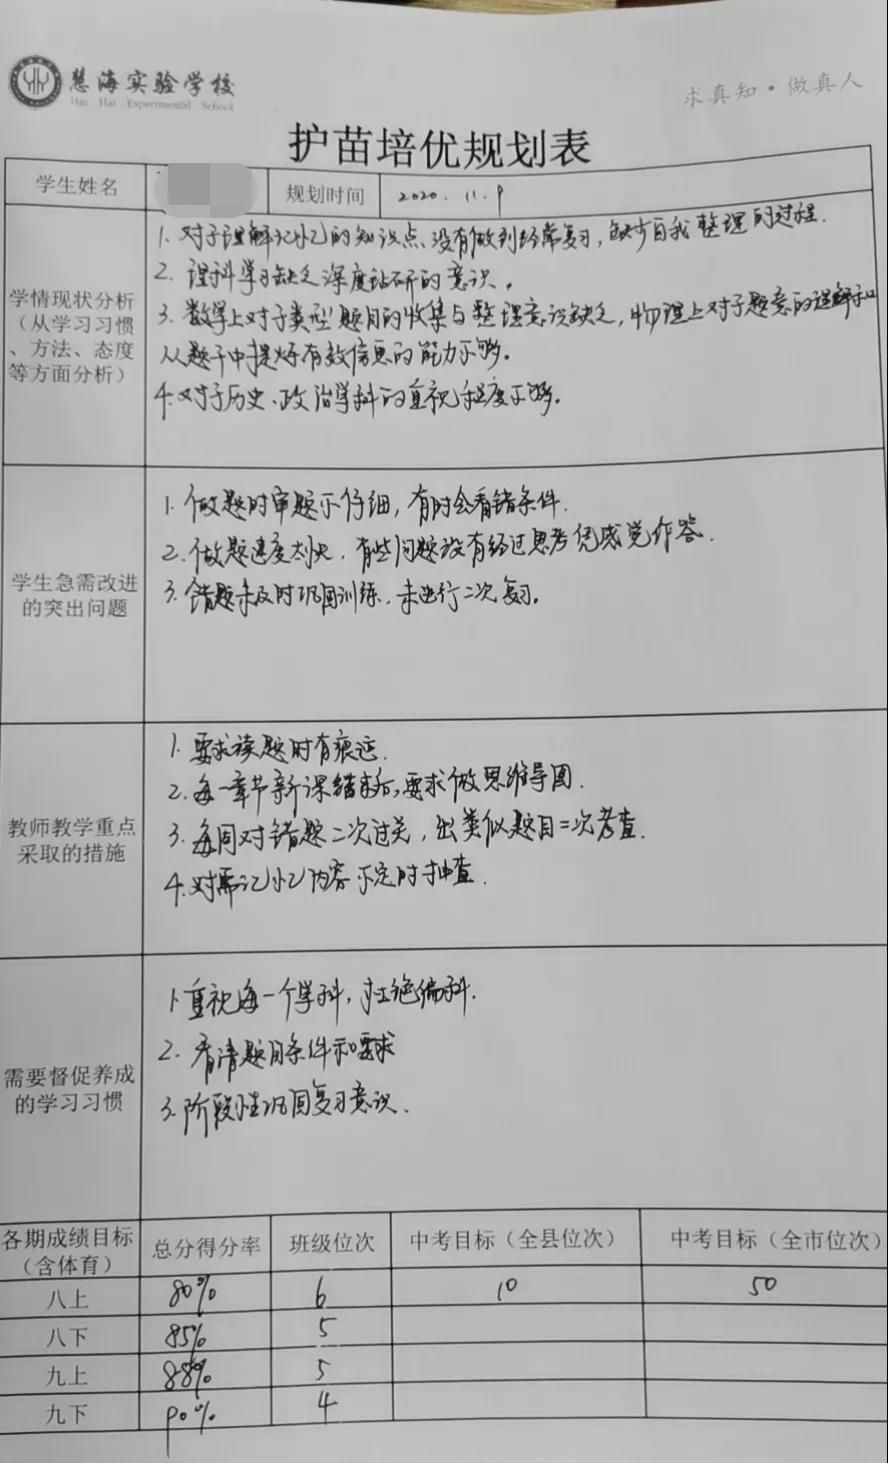 慧海实验学校
Hui Hai Experimental School
求真知·做真人
护苗培优规划表
学生姓名 规划时间 2020.11.9
学情现状分析
（从学习习惯
、方法、态度
等方面分析）
1. 对于理解记忆的知识点、没有做到经常复习，缺少自我整理的过程.
2. 理科学习缺乏深度钻研的意识。
3. 数学上对于类型题目的收集与整理意识缺乏，物理上对于题意的理解和
从题干中提炼有效信息的能力不够。
4. 对于历史、政治学科的重视程度不够。
学生急需改进
的突出问题
1. 做题时审题不仔细，有时会看错条件.
2. 做题速度太快、有些问题没有经过思考凭感觉作答.
3. 错题未及时巩固训练、未进行二次复习。
教师教学重点
采取的措施
1. 要求读题时有痕迹.
2. 每一章节新课结束后，要求做思维导图.
3. 每周对错题二次过关，出类似题目二次考查.
4. 对需记忆内容不定时抽查.
需要督促养成
的学习习惯
1. 重视每一个学科，拒绝偏科.
2. 看清题目条件和要求
3. 阶段性巩固复习意识.
各期成绩目标
（含体育） 总分得分率 班级位次 中考目标（全县位次） 中考目标（全市位次）
八上 80% 6 10 50
八下 85% 5
九上 88% 5
九下 90% 4